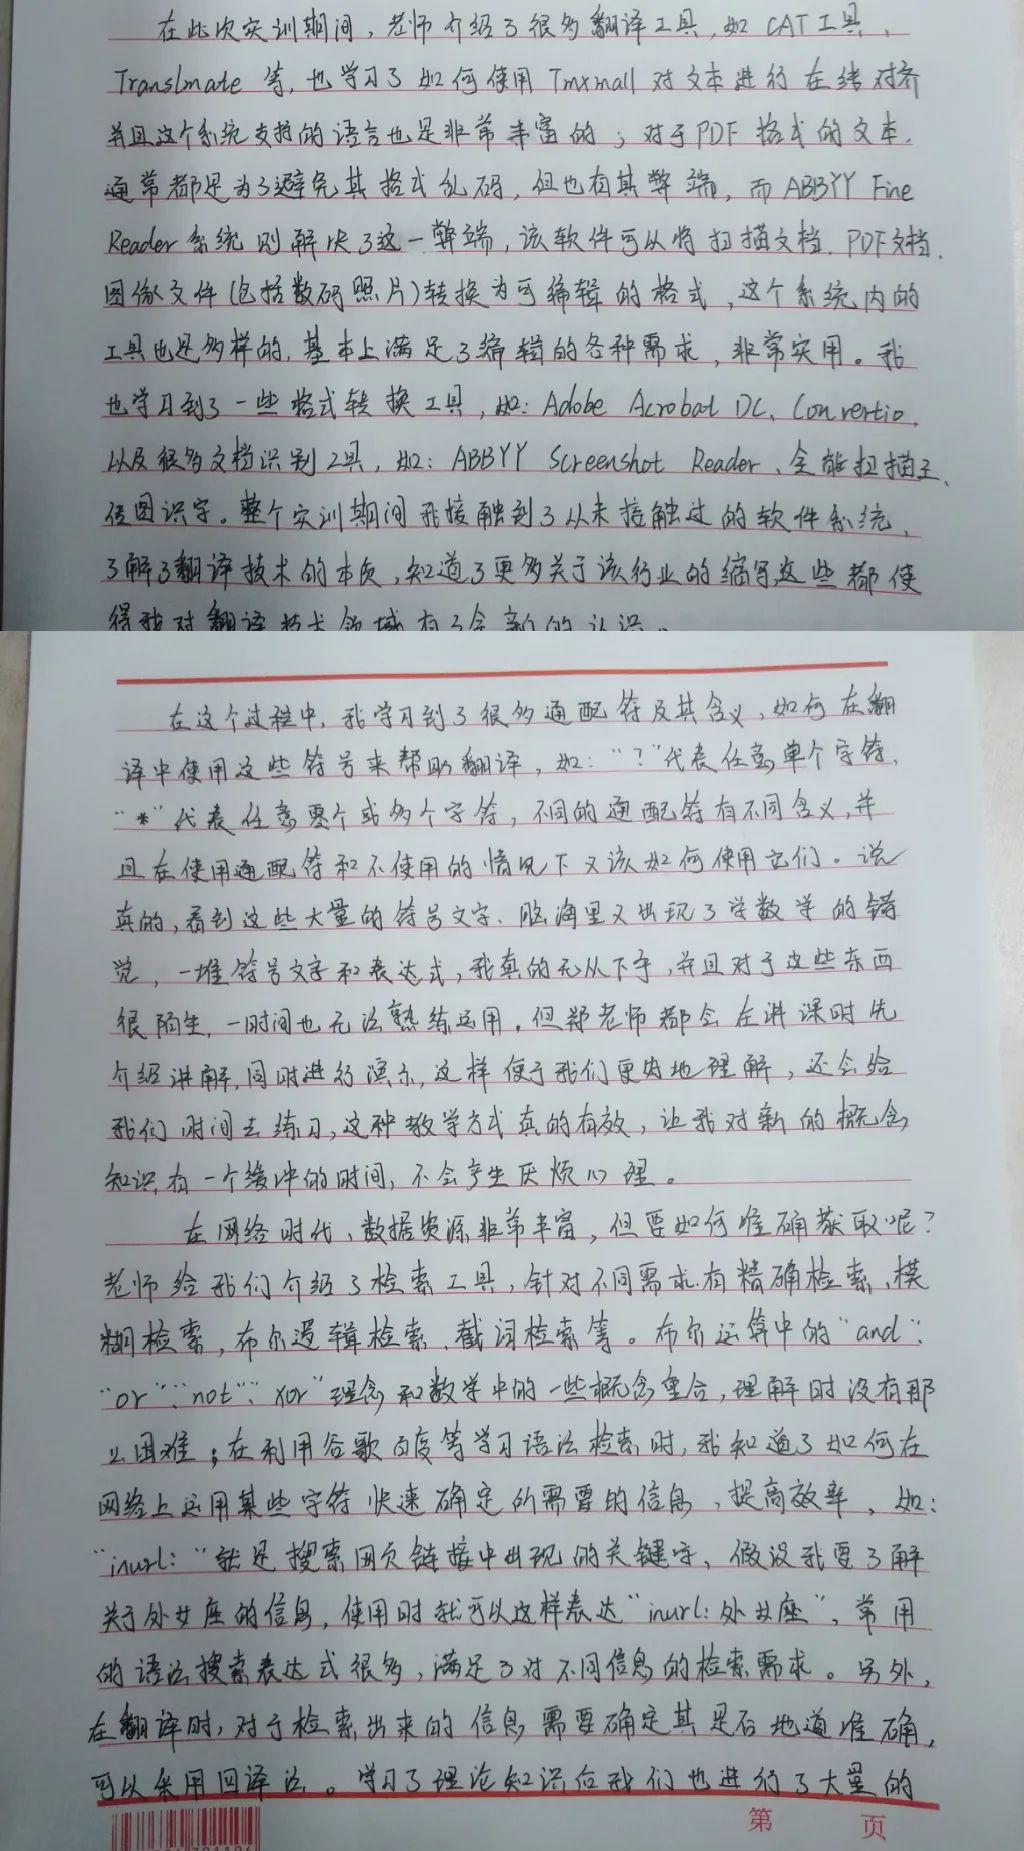 在此次实训期间，老师介绍了很多翻译工具，如CAT工具、
Translmate等，也学习了如何使用Tmxmall对文本进行在线对齐
并且这个系统支持的语言也是非常丰富的；对于PDF格式的文本，
通常都是为了避免其格式乱码，但也有其弊端，而ABBYY Fine
Reader系统则解决了这一弊端，该软件可以将扫描文档、PDF文档、
图像文件（包括数码照片）转换为可编辑的格式，这个系统内的
工具也是多样的，基本上满足了编辑的各种需求，非常实用。我
也学习到了一些格式转换工具，如：Adobe Acrobat DC、Convertio，
以及很多文档识别工具，如：ABBYY Screenshot Reader、全能扫描王、
传图识字。整个实训期间我接触到了从未接触过的软件系统，
了解了翻译技术的本质，知道了更多关于该行业的缩写，这些都使
得我对翻译技术领域有了全新的认识。
在这个过程中，我学习到了很多通配符及其含义，如何在翻
译中使用这些符号来帮助翻译，如：“？”代表任意单个字符，
“*”代表任意零个或多个字符，不同的通配符有不同含义，并
且在使用通配符和不使用的情况下又该如何使用它们。说
真的，看到这些大量的符号文字，脑海里又出现了学数学的错
觉，一堆符号文字和表达式，我真的无从下手，并且对于这些东西
很陌生，一时间也无法熟练运用，但郑老师都会在讲课时先
介绍讲解，同时进行演示，这样便于我们更好地理解，还会给
我们时间去练习，这种教学方式真的有效，让我对新的概念
知识有一个缓冲的时间，不会产生厌烦心理。
在网络时代，数据资源非常丰富，但要如何准确获取呢？
老师给我们介绍了检索工具，针对不同需求有精确检索、模
糊检索，布尔逻辑检索、截词检索等。布尔运算中的“and”、
“or”、“not”、“xor”理念和数学中的一些概念重合，理解时没有那
么困难；在利用谷歌百度等学习语法检索时，我知道了如何在
网络上运用某些字符快速确定所需要的信息，提高效率，如：
“inurl：”就是搜索网页链接中出现的关键字，假设我要了解
关于处女座的信息，使用时就可以这样表达“inurl：处女座”，常用
的语法搜索表达式很多，满足了对不同信息的检索需求。另外，
在翻译时，对于检索出来的信息需要确定其是否地道准确，
可以采用回译法。学习了理论知识后我们也进行了大量的
第 页